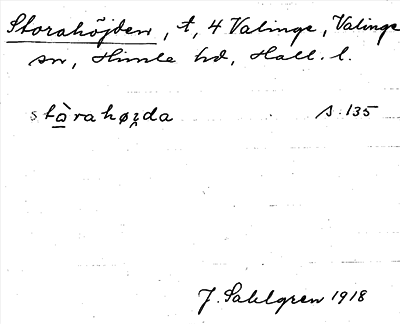 Storahöjden, t, 4 Valinge, Valinge
sn, Himle hd, Hall. l.
stàrahøi̯da s. 135
J. Sahlgren 1918